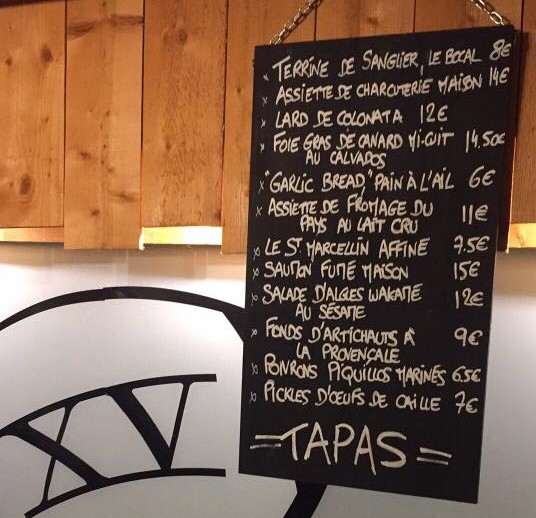 x TERRINE DE SANGLIER, LE BOCAL 8€
x ASSIETTE DE CHARCUTERIE MAISON 14€
x LARD DE COLONATA 12€
x FOIE GRAS DE CANARD MI-CUIT 14,50€
AU CALVADOS
x "GARLIC BREAD," PAIN À L'AIL 6€
x ASSIETTE DE FROMAGE DU 11€
PAYS AU LAIT CRU
x LE ST MARCELLIN AFFINE 7.5€
x SAUMON FUMÉ MAISON 15€
x SALADE D'ALGES WAKAME 12€
AU SÉSAME
x FONDS D'ARTICHAUTS A 9€
LA PROVENCALE
x POIVRONS PIQUILLOS MARINÉS 6.5€
x PICKLES D'ŒUFS DE CAILLE 7€
=TAPAS=
XV